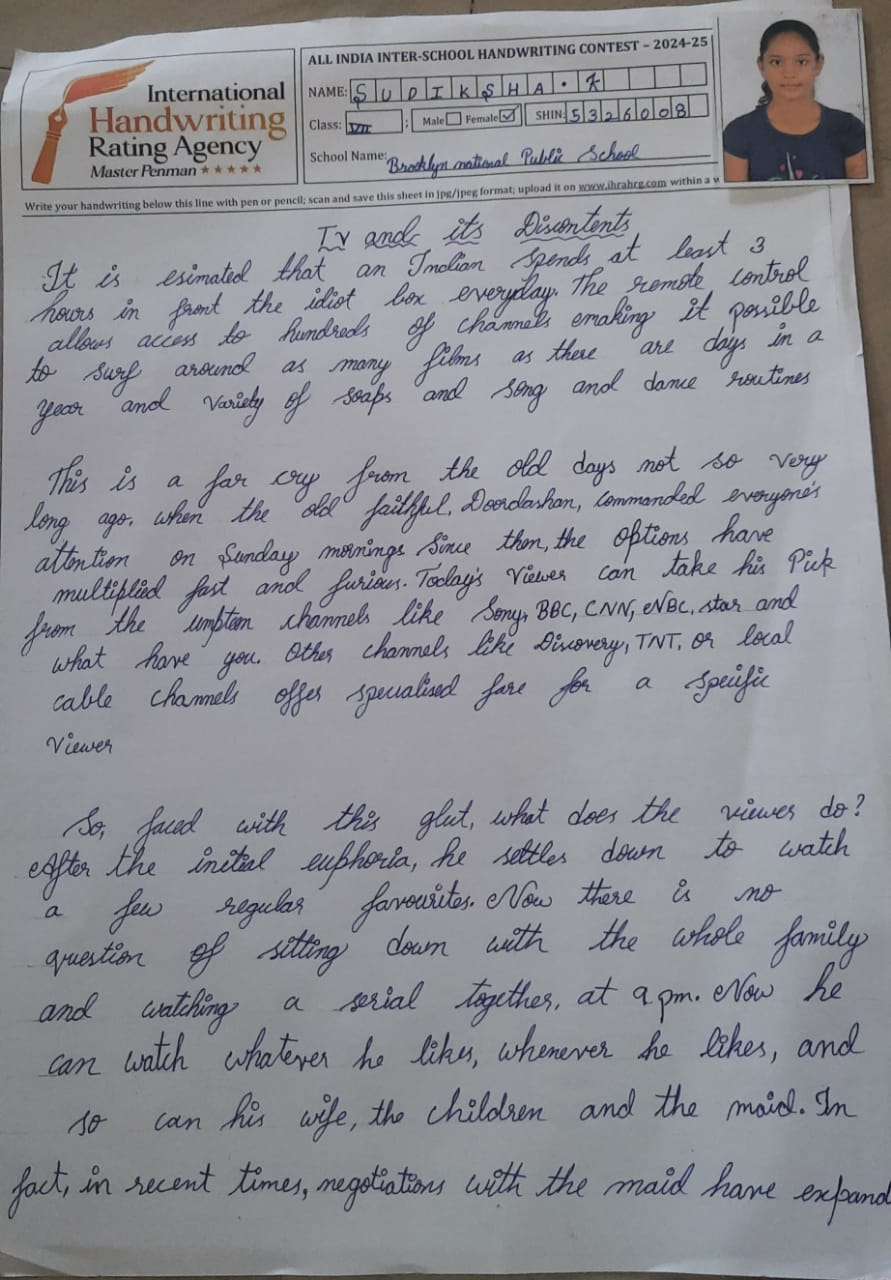 International
Handwriting
Rating Agency
Master Penman ★★★★★
ALL INDIA INTER-SCHOOL HANDWRITING CONTEST - 2024-25
NAME: SUDIKSHA. K
Class: VII ; Male Female ✓ SHIN: 5326008
School Name: Brooklyn national Public School
Write your handwriting below this line with pen or pencil; scan and save this sheet in jpg/jpeg format; upload it on www.ihrahrg.com within a w
Tv and its Discontents
It is esimated that an Indian spends at least 3
hours in front the idiot box everyday. The remote control
allows access to hundreds of channels emaking it possible
to surf around as many films as there are days in a
year and variety of soaps and song and dance routines
This is a far cry from the old days not so very
long ago, when the old faithful, Doordashan, commanded everyone's
attention on Sunday mornings Since then, the options have
multiplied fast and furious. Today's Viewer can take his Pick
from the umpteen channels like Sony, BBC, CNN, NBC, star and
what have you. Other channels like Discovery, TNT, or local
cable channels offer specialised fare for a specific
Viewer
So, faced with this glut, what does the viewer do?
After the initial euphoria, he settles down to watch
a few regular favourites. Now there is no
question of sitting down with the whole family
and watching a serial together, at 9 pm. Now he
can watch whatever he likes, whenever he likes, and
so can his wife, the children and the maid. In
fact, in recent times, negotiations with the maid have expand